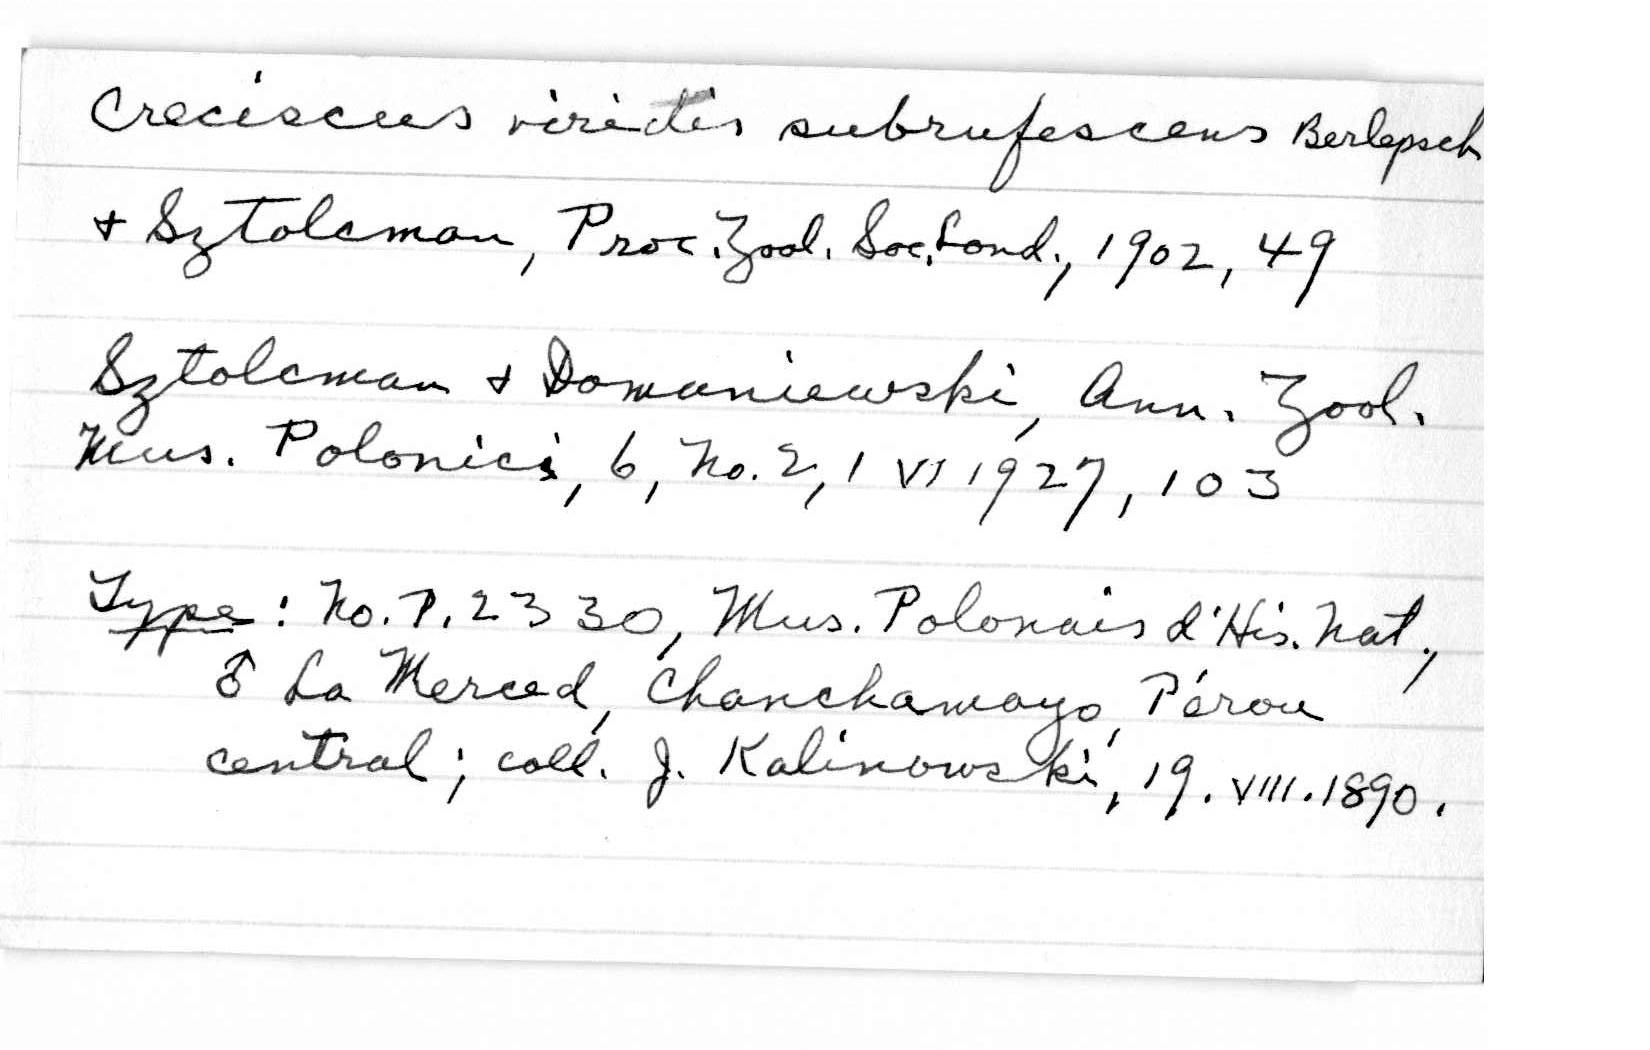 Creciscus viridis subrufescens Berlepsch
& Sztolcman, Proc. Zool. Soc. Lond., 1902, 49
Sztolcman & Domaniewski, Ann. Zool.
Mus. Polonici, 6, No. 2, 1 VI 1927, 103
Type: No. P. 2330, Mus. Polonais d'His. Nat.,
♂ La Merced, Chanchamayo, Pérou
central; coll. J. Kalinowski, 19. VIII. 1890.